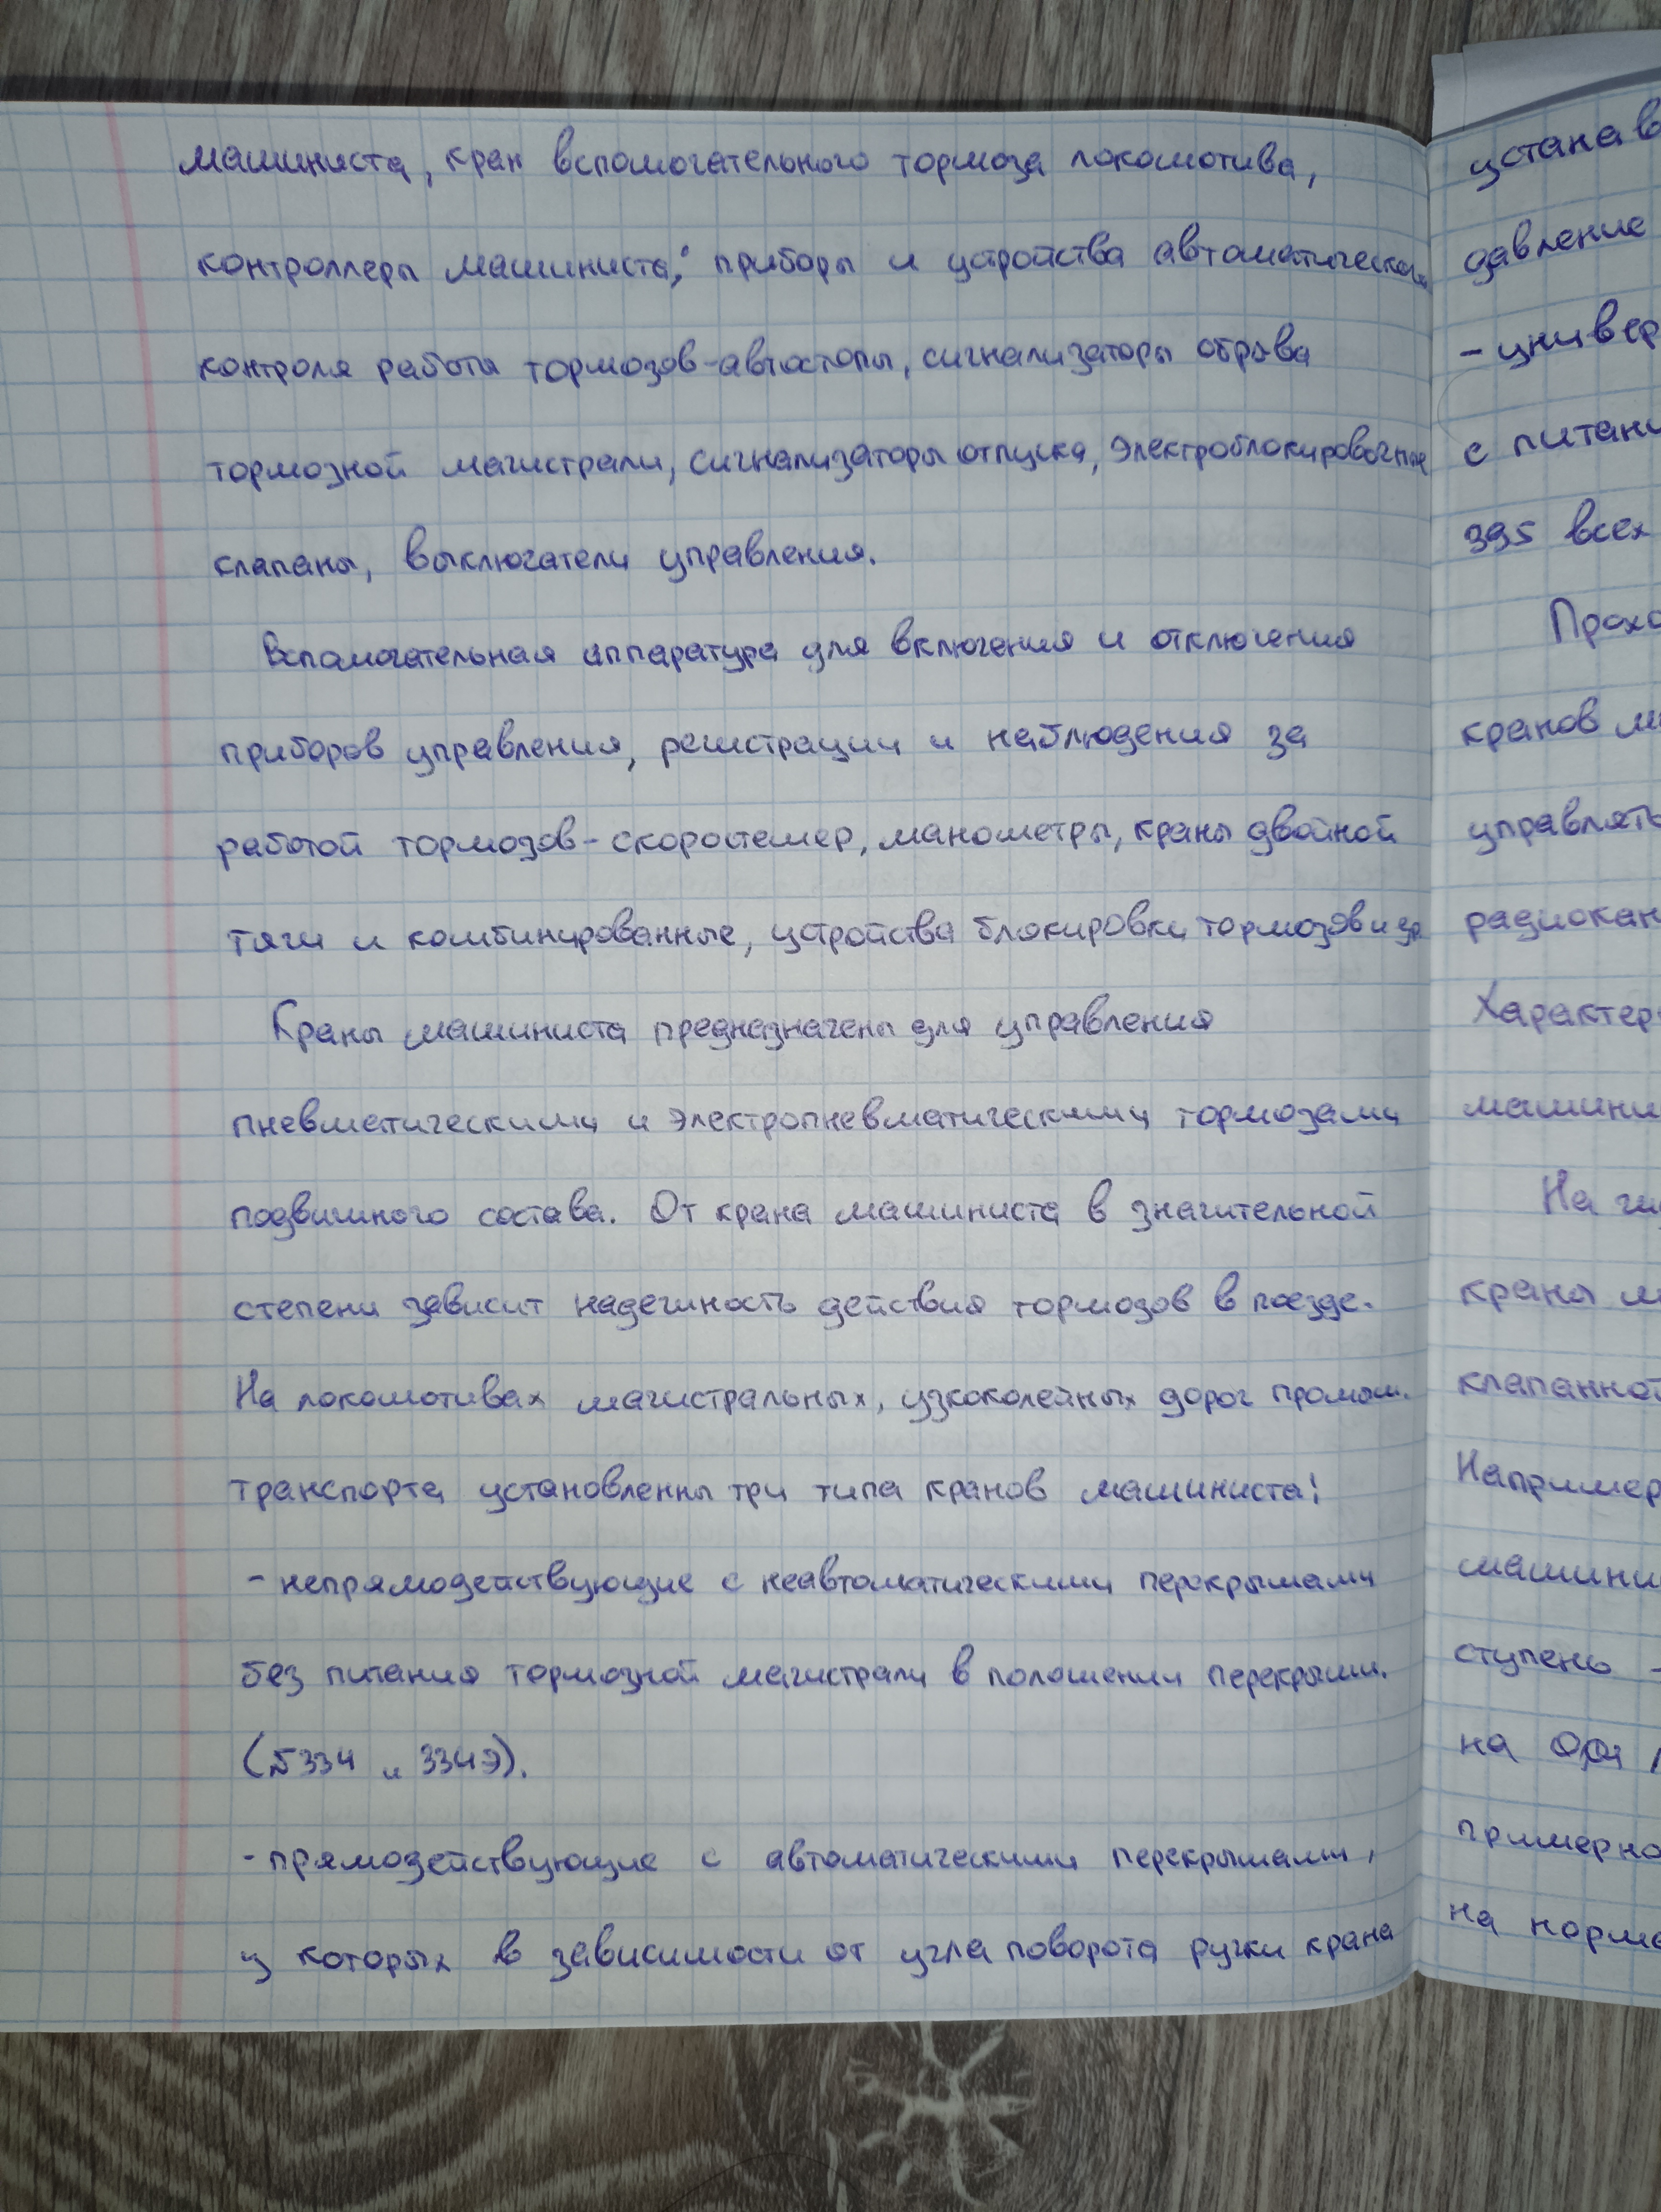 машиниста, кран вспомогательного тормоза локомотива,
контроллеры машиниста; приборы и устройства автоматического
контроля работы тормозов-автостопы, сигнализаторы обрыва
тормозной магистрали, сигнализаторы отпуска, электроблокировочные
клапаны, выключатели управления.
Вспомогательная аппаратура для включения и отключения
приборов управления, регистрации и наблюдения за
работой тормозов-скоростемер, манометры, краны двойной
тяги и комбинированные, устройства блокировки тормозов и др
Краны машиниста предназначены для управления
пневматическими и электропневматическими тормозами
подвижного состава. От крана машиниста в значительной
степени зависит надежность действия тормозов в поезде.
На локомотивах магистральных, узкоколейных дорог промыш.
транспорта установленны три типа кранов машиниста:
- непрямодействующие с неавтоматическими перекрышами
без питания тормозной магистрали в положении перекрыши.
(№334 и 334Э).
- прямодействующие с автоматическими перекрышами,
у которых в зависимости от угла поворота ручки крана
устанав
давление
- универ
с питани
395 всех
Прохо
кранов м
управлять
радиокан
Характер
машини
На
краны м
клапанной
Например
машини
ступень -
на
примерно
на норма